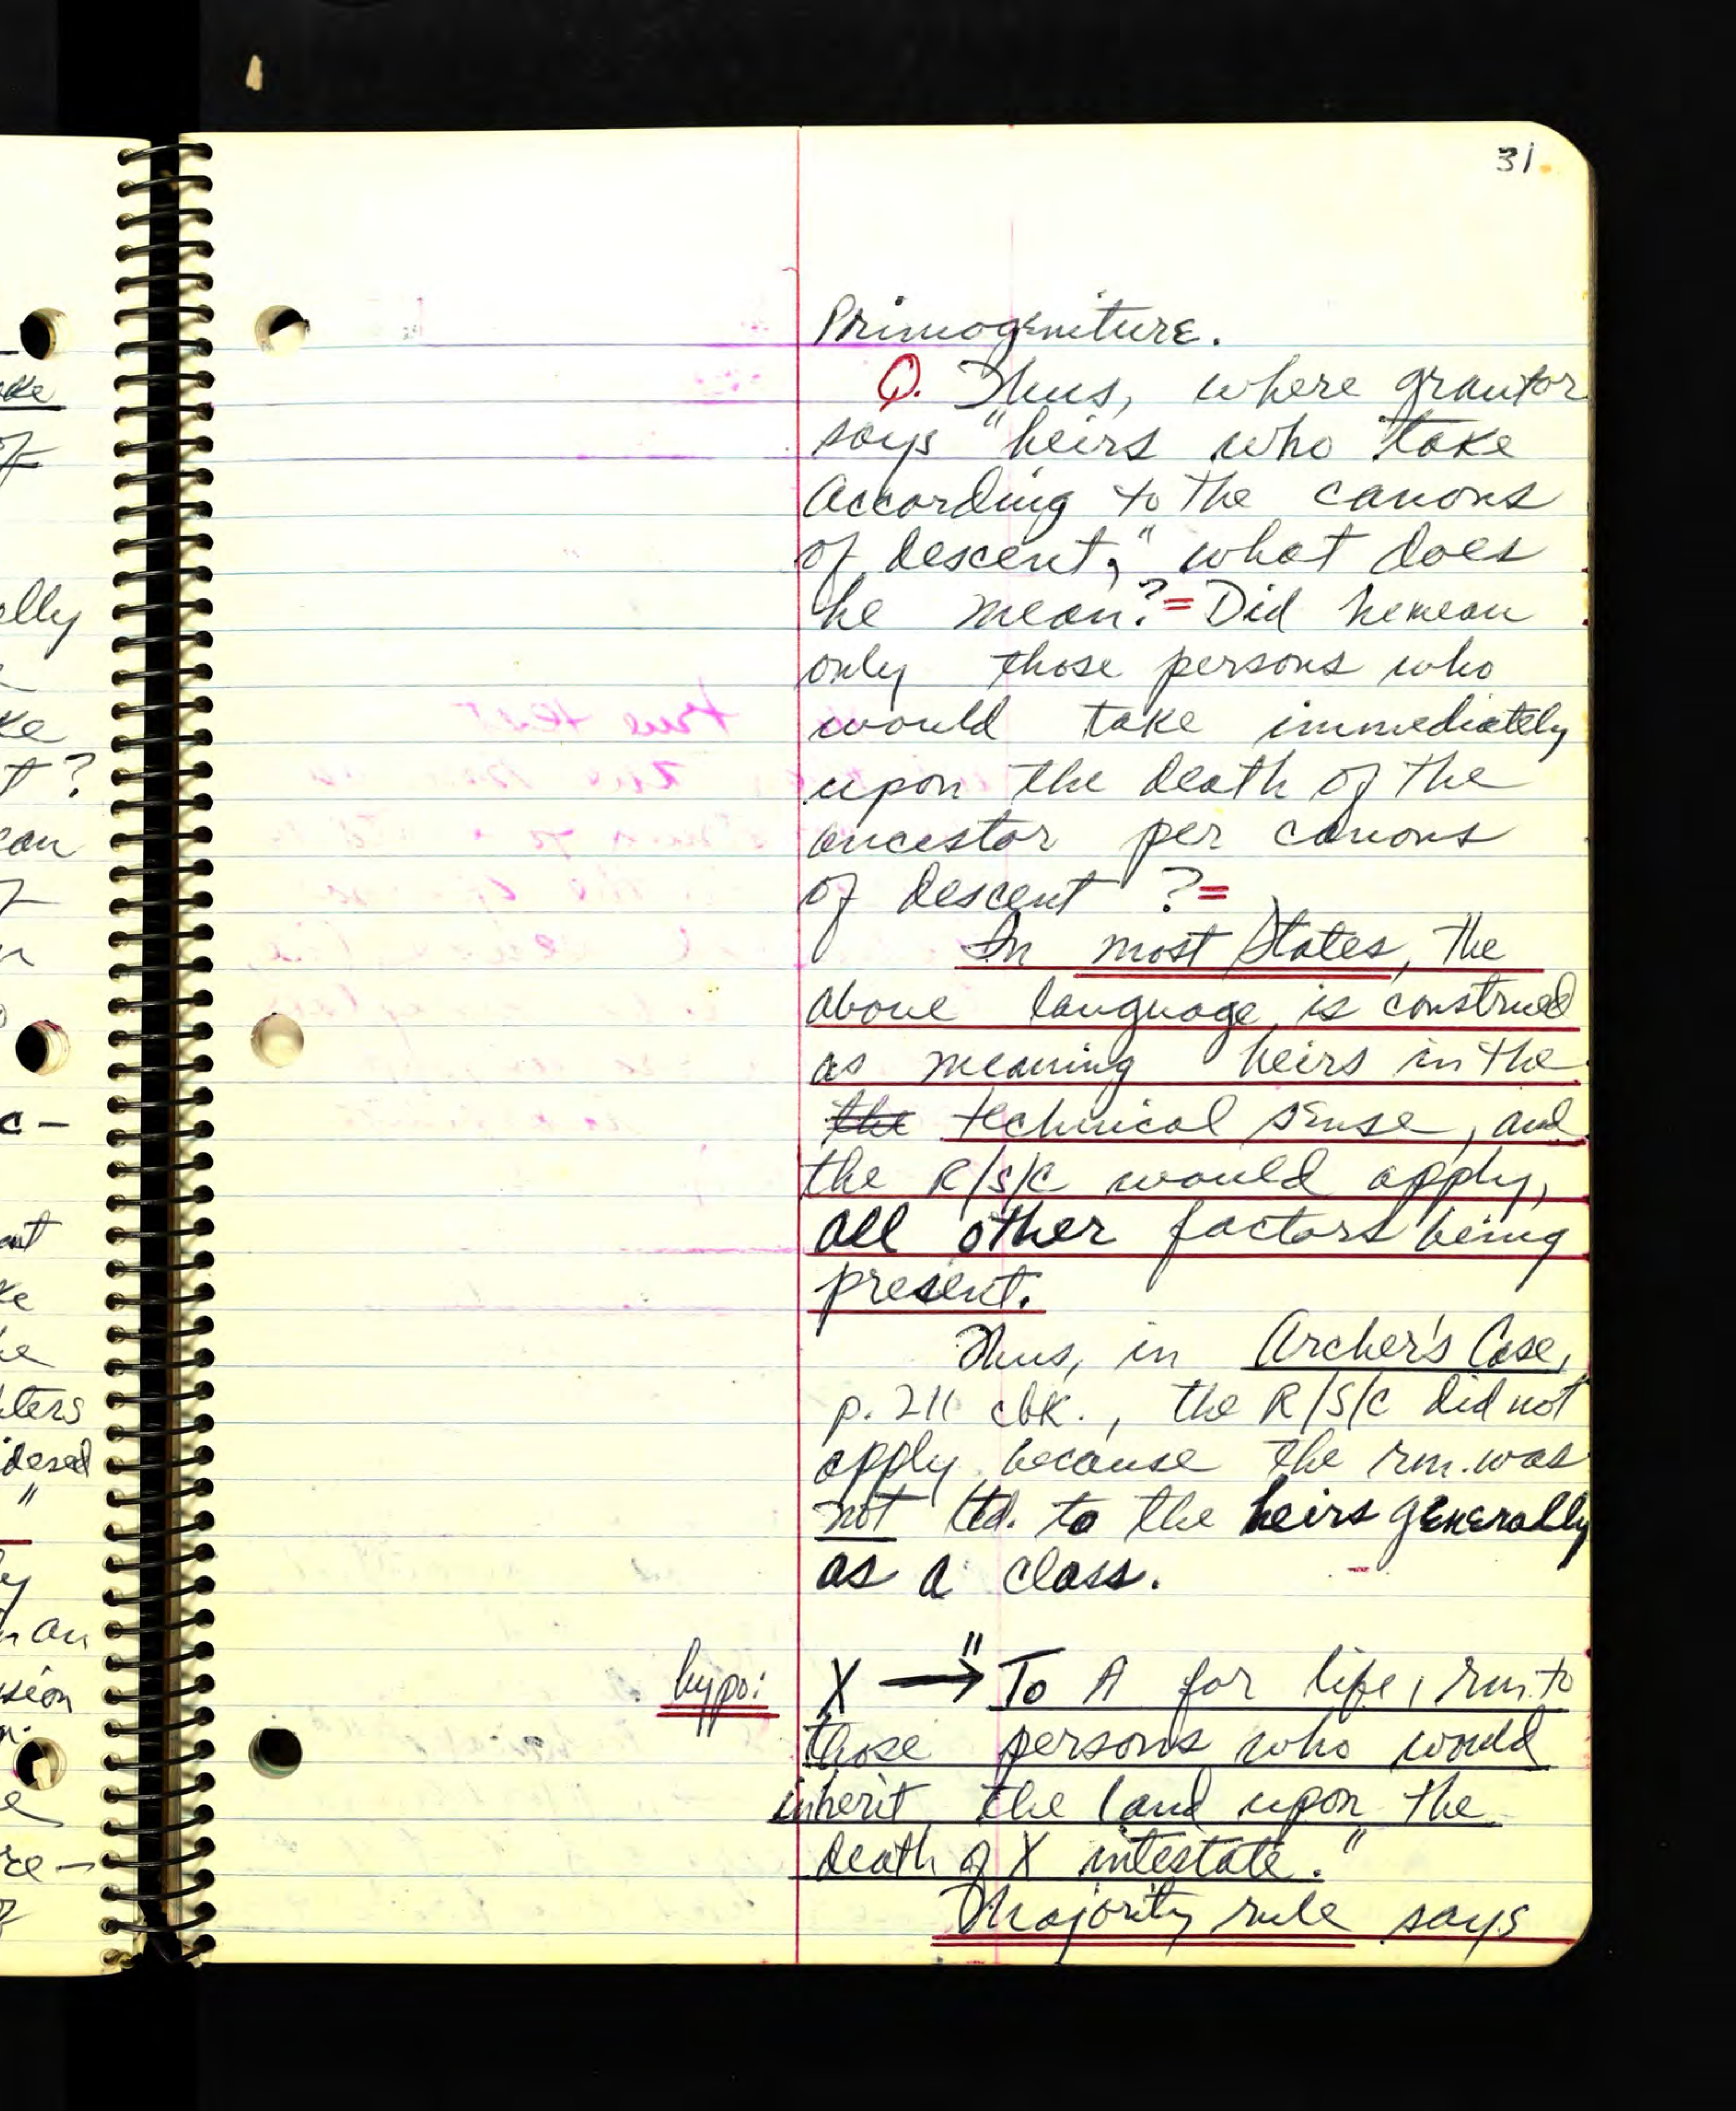 31
Primogeniture.
Q. Thus, where grantor
says "heirs who take
according to the canons
of descent," what does
he mean? = Did he mean
only those persons who
would take immediately
upon the death of the
ancestor per canons
of descent ? =
In most States, the
above language is construed
as meaning heirs in the
the technical sense, and
the R/S/C would apply,
all other factors being
present.
Thus, in Archer's Case,
p. 211 cbk., the R/S/C did not
apply because the rm. was
not ltd. to the heirs generally
as a class.
hypo: X → "To A for life, rm. to
those persons who would
inherit the land upon the
death of X intestate."
Majority rule says